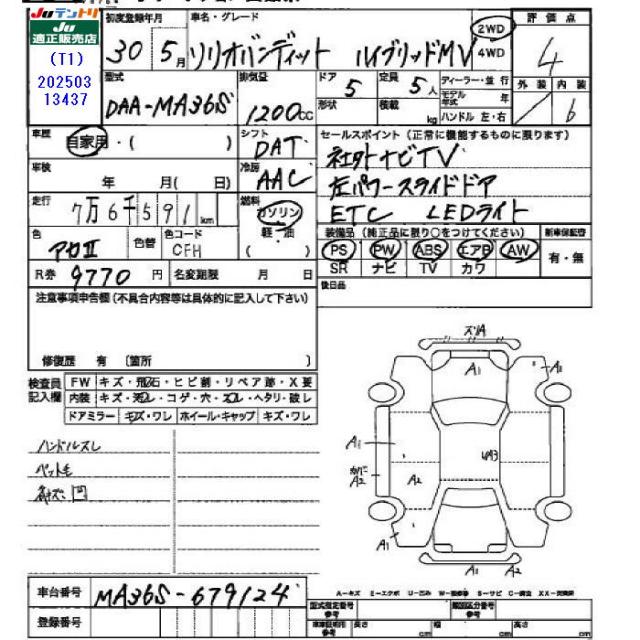 JUテントリ
JU
適正販売店
(T1)
202503
13437
初度登録年月
30年 5月
車名・グレード
ソリオバンディット ハイブリッドMV
2WD
4WD
評価点
4
外装 内装
6
型式
DAA-MA36S
排気量
1200cc
ドア
5
定員
5人
形状
積載
kg
ディーラー・並行
モデル年式 年
ハンドル 左・右
車歴
自家用・( )
シフト
DAT
セールスポイント(正常に機能するものに限ります)
社外ナビTV
左パワースライドドア
ETC LEDライト
車検
年 月( 日)
冷房
AAC
走行
7万6千591km
燃料
ガソリン
軽・油
( )
色
アカII
色替
色コード
CFH
装備品(純正品に限り○をつけてください)
PS PW ABS エアB AW
SR ナビ TV カワ
新車保証書
有・無
R券 9770円
名変期限 月 日
後日品
注意事項申告欄(不具合内容等は具体的に記入して下さい)
修復歴 有(箇所 )
検査員
記入欄
FW キズ・飛石・ヒビ割・リペア跡・X要
内装 キズ・汚レ・コゲ・穴・スレ・ヘタリ・破レ
ドアミラー キズ・ワレ ホイール・キャップ キズ・ワレ
ハンドルスレ
ペット毛
A1
A1
A1
A2
A1
A1
A2
車台番号 MA36S-679124
登録番号
A-キズ E-エクボ U-凹み W-補修跡 S-サビ C-腐食 XX-交換済
型式指定番号
参考
類別区分番号
参考
車車証明用
参考
長さ cm
幅 cm
高さ cm